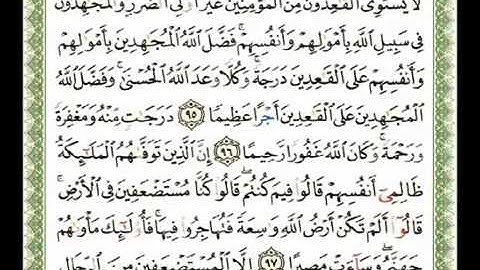 لَّا يَسْتَوِى ٱلْقَٰعِدُونَ مِنَ ٱلْمُؤْمِنِينَ غَيْرُ أُو۟لِى ٱلضَّرَرِ وَٱلْمُجَٰهِدُونَ
فِى سَبِيلِ ٱللَّهِ بِأَمْوَٰلِهِمْ وَأَنفُسِهِمْ ۚ فَضَّلَ ٱللَّهُ ٱلْمُجَٰهِدِينَ بِأَمْوَٰلِهِمْ
وَأَنفُسِهِمْ عَلَى ٱلْقَٰعِدِينَ دَرَجَةً ۚ وَكُلًّا وَعَدَ ٱللَّهُ ٱلْحُسْنَىٰ ۚ وَفَضَّلَ ٱللَّهُ
ٱلْمُجَٰهِدِينَ عَلَى ٱلْقَٰعِدِينَ أَجْرًا عَظِيمًا ٩٥ دَرَجَٰتٍ مِّنْهُ وَمَغْفِرَةً
وَرَحْمَةً ۚ وَكَانَ ٱللَّهُ غَفُورًا رَّحِيمًا ٩٦ إِنَّ ٱلَّذِينَ تَوَفَّىٰهُمُ ٱلْمَلَٰٓئِكَةُ
ظَالِمِىٓ أَنفُسِهِمْ قَالُوا۟ فِيمَ كُنتُمْ ۖ قَالُوا۟ كُنَّا مُسْتَضْعَفِينَ فِى ٱلْأَرْضِ ۚ
قَالُوٓا۟ أَلَمْ تَكُنْ أَرْضُ ٱللَّهِ وَٰسِعَةً فَتُهَاجِرُوا۟ فِيهَا ۚ فَأُو۟لَٰٓئِكَ مَأْوَىٰهُمْ
جَهَنَّمُ ۖ وَسَآءَتْ مَصِيرًا ٩٧ إِلَّا ٱلْمُسْتَضْعَفِينَ مِنَ ٱلرِّجَالِ